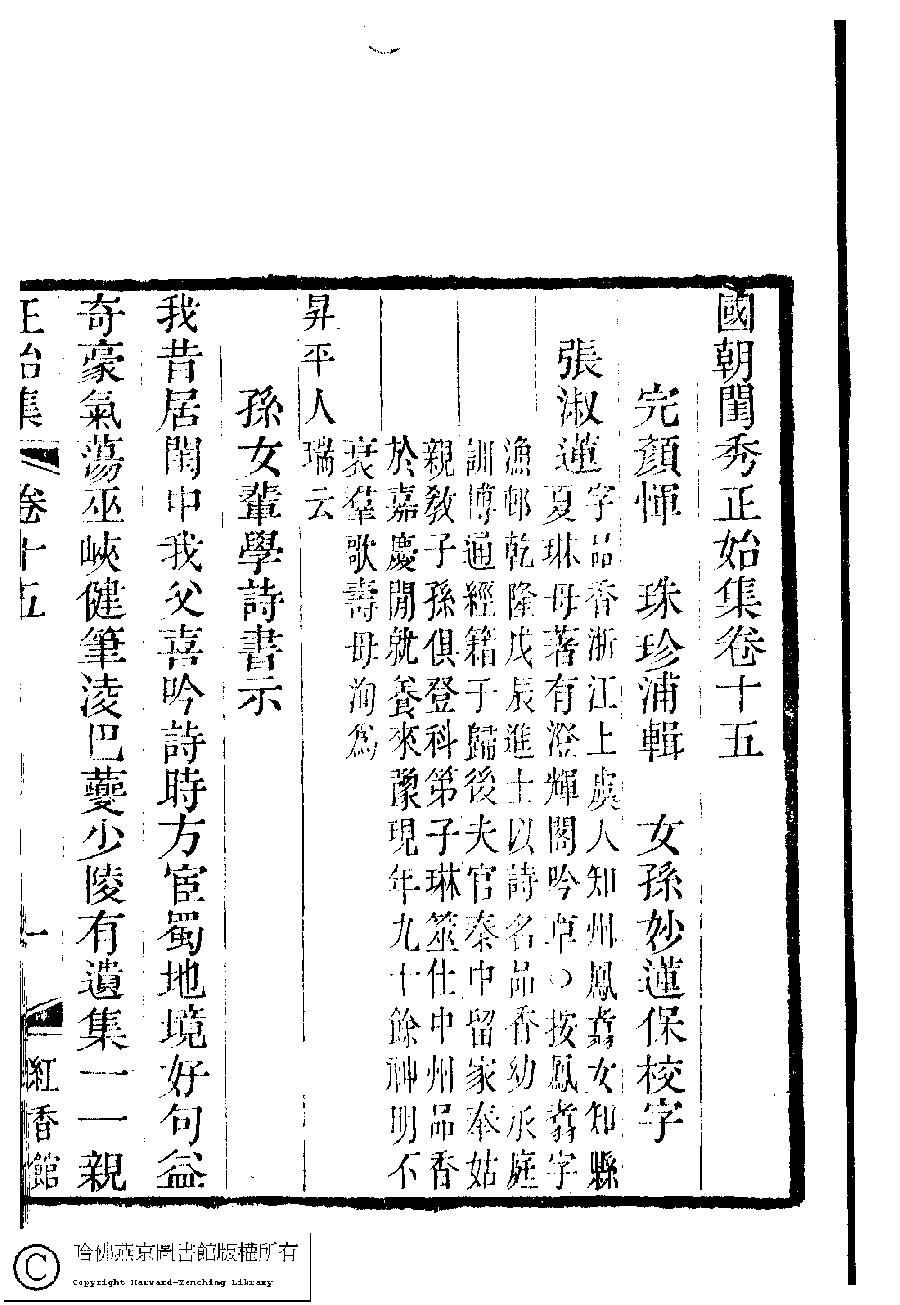 國朝閨秀正始集卷十五
完顏惲　珠珍浦輯　女孫妙蓮保校字
張淑蓮
字品香浙江上虞人知州鳳翥女知縣
夏琳母著有澄輝閣吟草○按鳳翥字
漁邨乾隆戊辰進士以詩名品香幼承庭
訓博通經籍于歸後夫官秦中留家奉姑
親教子孫俱登科第子琳筮仕中州品香
於嘉慶閒就養來豫現年九十餘神明不
衰羣歌壽母洵爲
昇平人瑞云
孫女輩學詩書示
我昔居閨中我父喜吟詩時方宦蜀地境好句益
奇豪氣蕩巫峽健筆凌巴夔少陵有遺集一一親
正始集　卷十五　一　紅香館
哈佛燕京圖書館版權所有
Copyright Harvard-Yenching Library